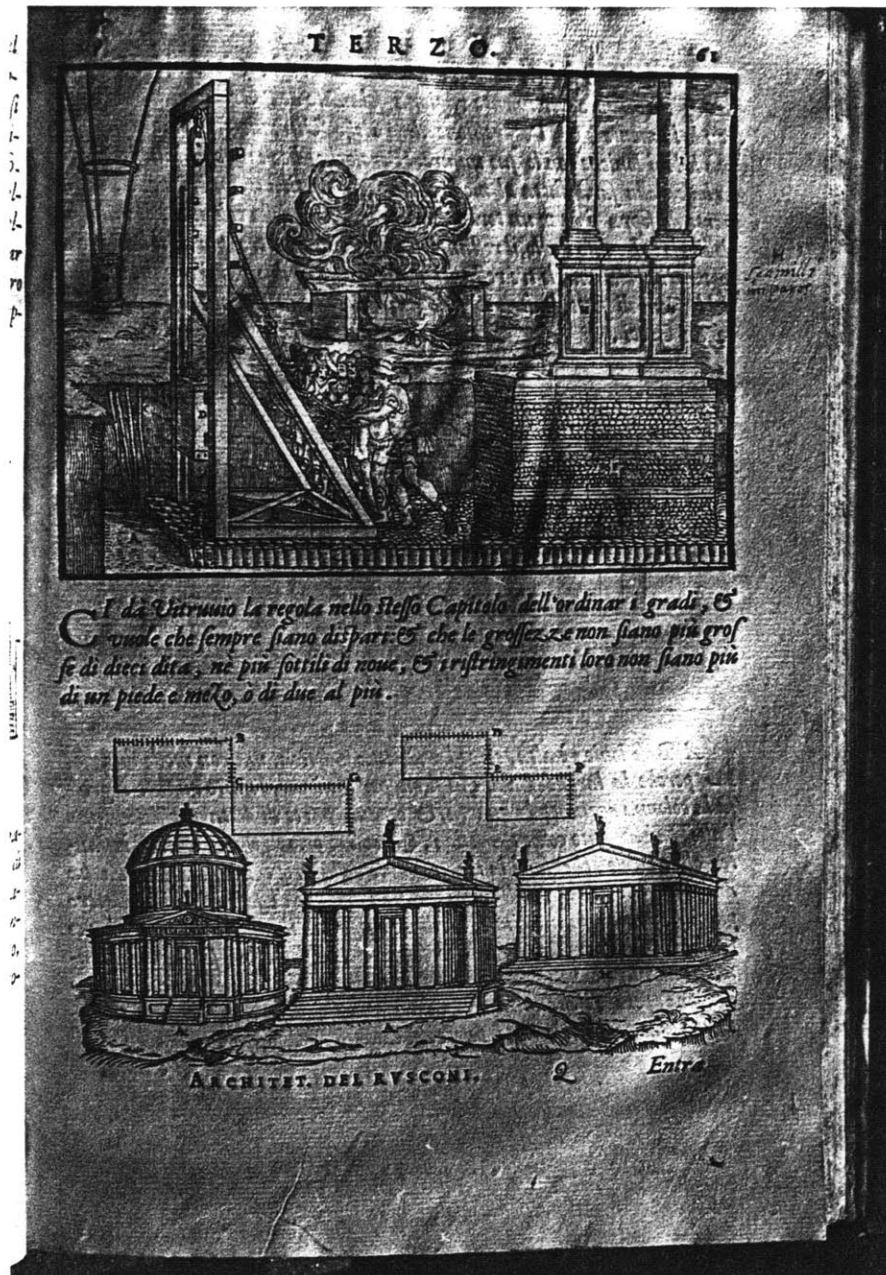 TERZO.
61
H
Scamilli
impares
CI dà Vitruuio la regola nello stesso Capitolo dell'ordinar i gradi, &
vuole che sempre siano dispari: & che le grossezze non siano più gros
se di dieci dita, nè più sottili di noue, & i ristringimenti loro non siano più
di un piede e mezo, ò di due al più.
B
D
C
G
E
F
A
A
ARCHITET. DEL RVSCONI.
Q
Entra